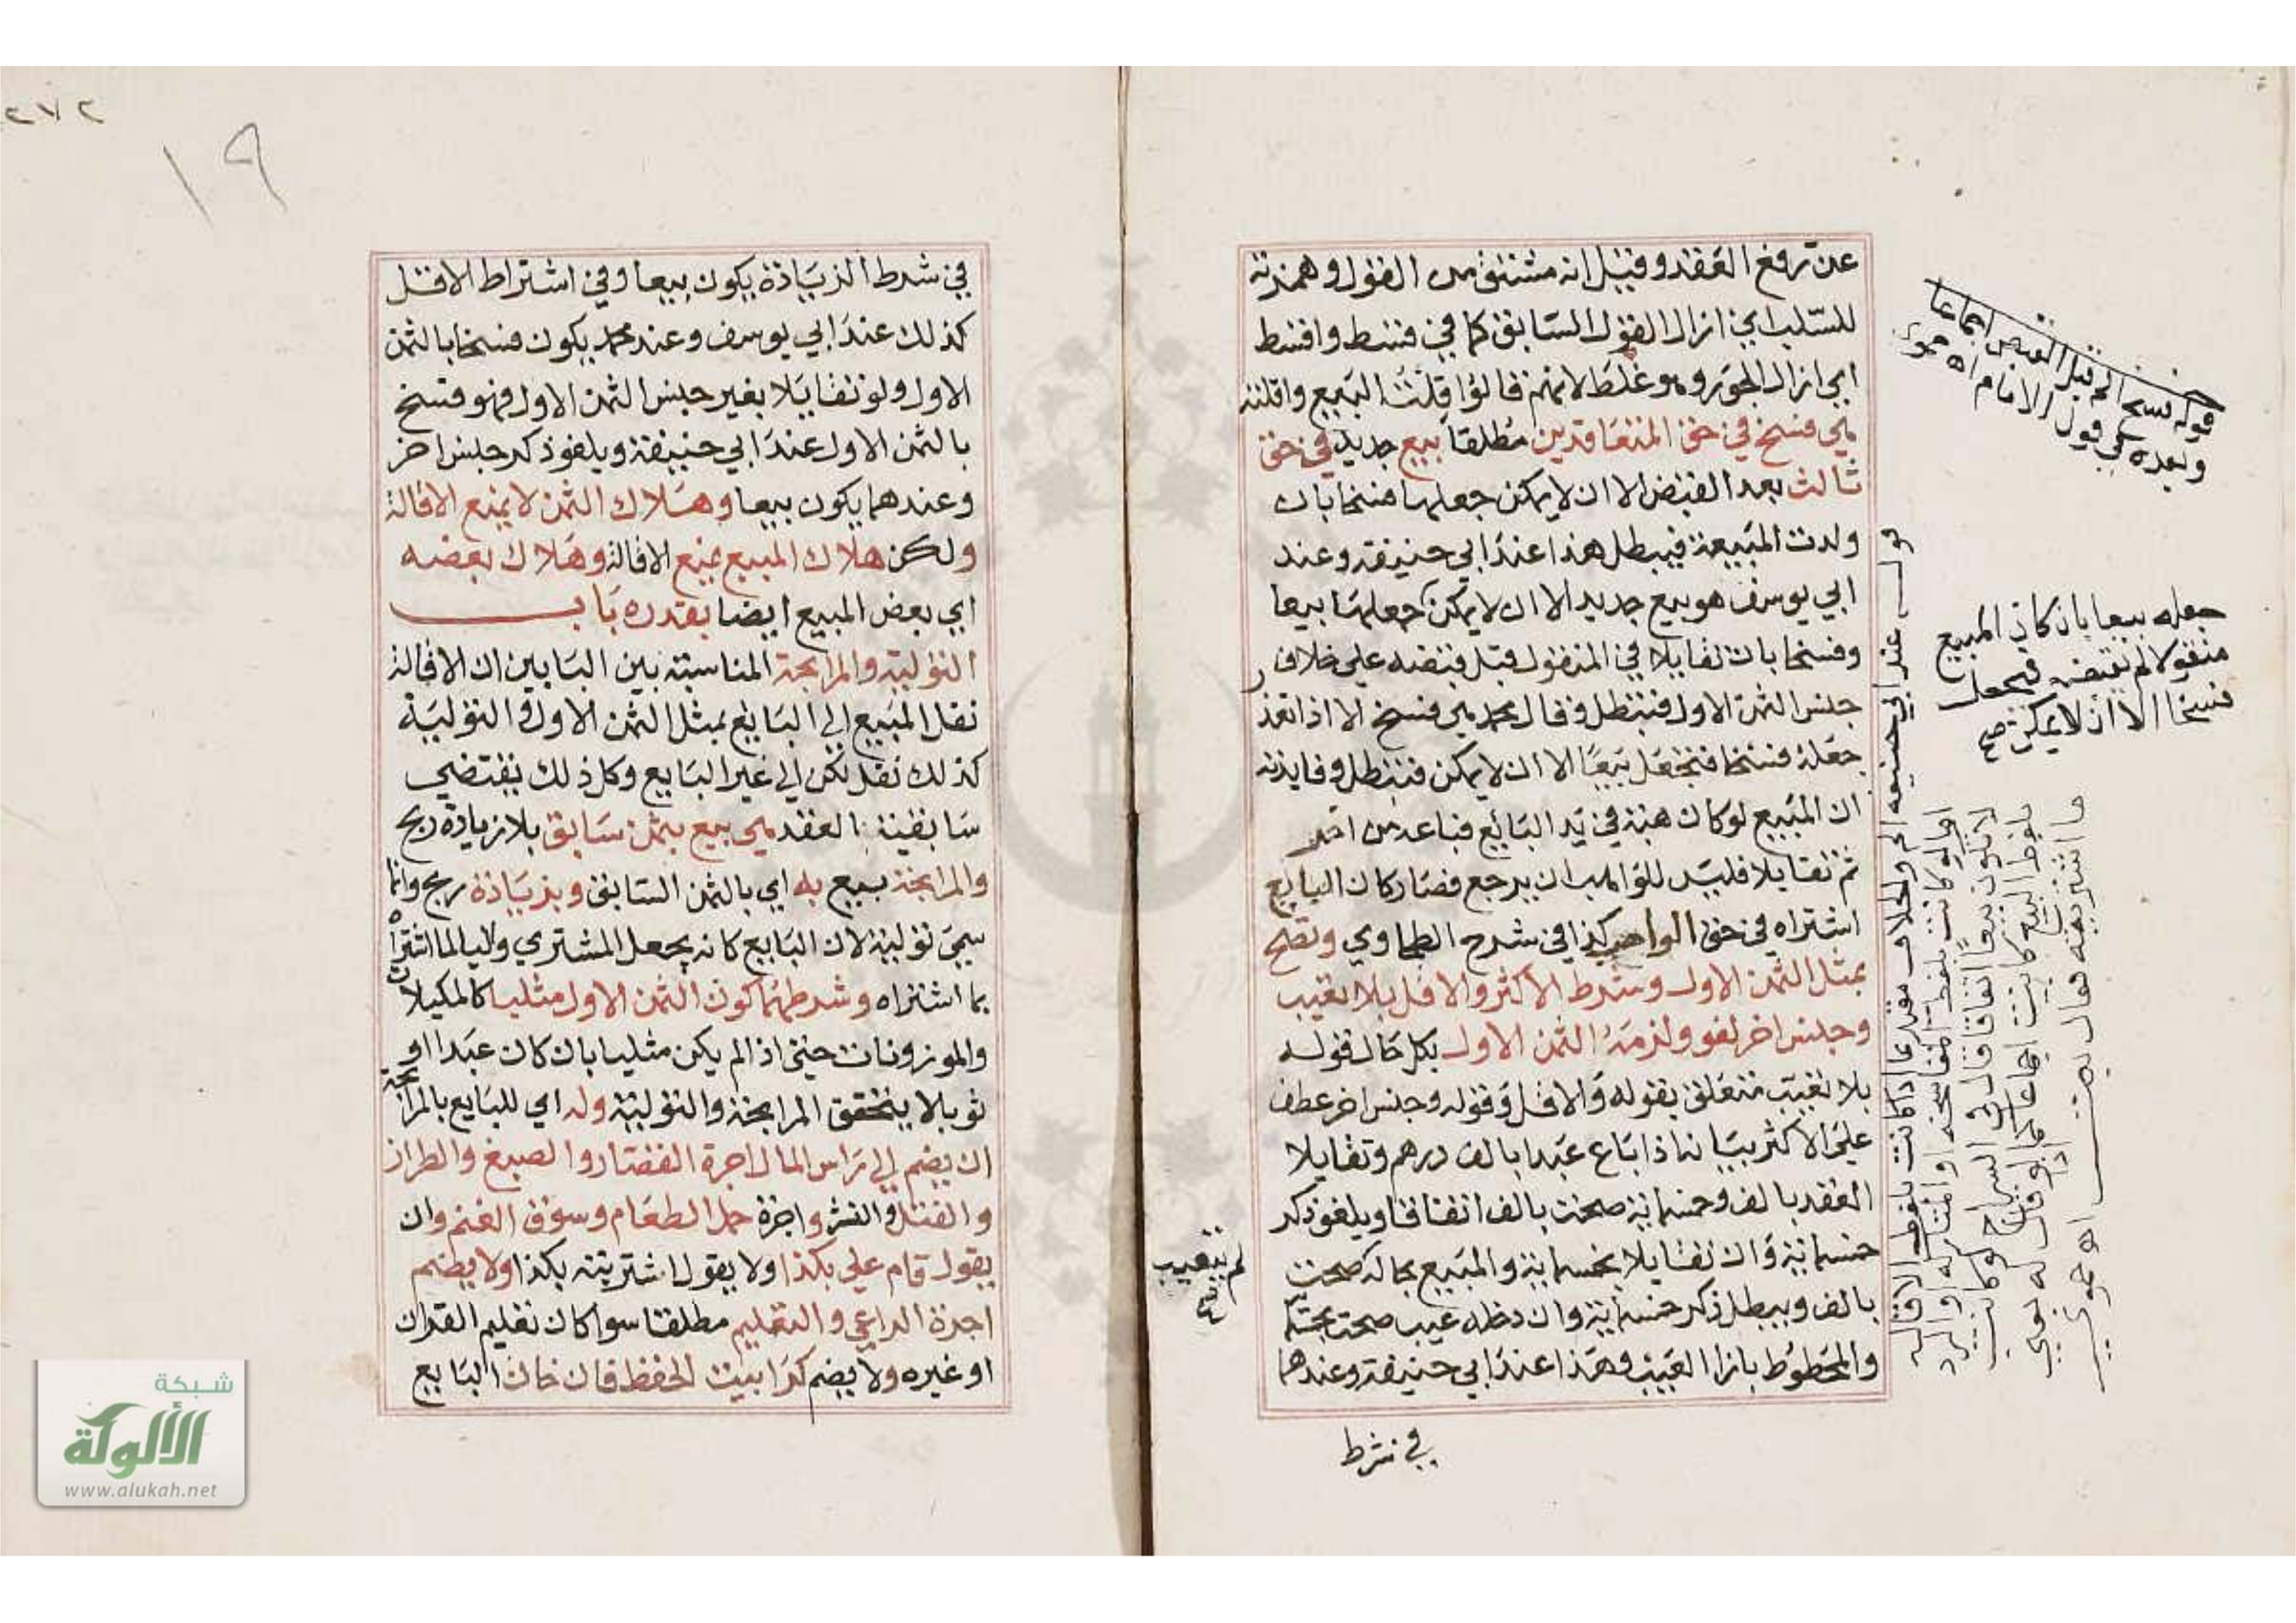 عن رفع العقد وقيل انه مشتق من القول وهمزته
للسلب اي ازال القول السابق كما في قسط واقسط
اي ازال الجور وهو غلط لانهم قالوا قلت البيع واقلته
هي فسخ في حق المتعاقدين مطلقا بيع جديد في حق
ثالث بعد القبض الا ان لا يمكن جعلها فسخا بان
ولدت المبيعة فيبطل هذا عند ابي حنيفة وعند
ابي يوسف هو بيع جديد الا ان لا يمكن جعلها بيعا
وفسخا بان تقايلا في المنقول قبل قبضه على خلاف
جنس الثمن الاول فتبطل وقال محمد هي فسخ الا اذا تعذر
جعله فسخا فتجعل بيعا الا ان لا يمكن فتبطل وفايدته
ان المبيع لو كان هبة في يد البايع فباعه من اخر
ثم تقايلا فليس للواهب ان يرجع فصار كان البايع
اشتراه في حق الواهب كذا في شرح الطحاوي وتصح
بمثل الثمن الاول وشرط الاكثر والاقل بلا تعيب
وجنس اخر لغو ولزمه الثمن الاول بكل حال قوله
بلا تعيب متعلق بقوله والاقل وقوله وجنس اخر عطف
على الاكثر بيانه اذا باع عبدا بالف درهم وتقايلا
العقد بالف وخمسماية صحت بالف اتفاقا ويلغو ذكر
خمسماية وان تقايلا بخمسماية والمبيع بحاله صحت
بالف ويبطل ذكر خمسماية وان دخله عيب صحت بخمسماية
والمحطوط بازا العيب وهذا عند ابي حنيفة وعندهما
في شرط
قوله فسخ الخ قبل القبض اجماعا
وبعده في قول الامام اه حموي
جعله بيعا بان كان المبيع
منقولا لم يقبضه فيجعل
فسخا الا ان لا يمكن صح
قوله عند ابي حنيفة الخ والخلاف مقيد بما اذا كانت بلفظ الاقالة
اما لو كانت بلفظ المفاسخة او المتاركة او الرد
لا تكون بيعا اتفاقا قال في السراج لو كانت
بلفظ البيع كانت بيعا اجماعا كما لو قال له بعني
ما اشتريته فقال بعت اه حموي
لم يتعيب
صح
٢٧٢
١٩
في شرط الزيادة يكون بيعا وفي اشتراط الاقل
كذلك عند ابي يوسف وعند محمد يكون فسخا بالثمن
الاول ولو تقايلا بغير جنس الثمن الاول فهو فسخ
بالثمن الاول عند ابي حنيفة ويلغو ذكر جنس اخر
وعندهما يكون بيعا وهلاك الثمن لا يمنع الاقالة
ولكن هلاك المبيع يمنع الاقالة وهلاك بعضه
اي بعض المبيع ايضا بقدره باب
التولية والمرابحة المناسبة بين البابين ان الاقالة
نقل المبيع الى البايع بمثل الثمن الاول والتولية
كذلك نقل لكن الى غير البايع وكل ذلك يقتضي
سابقية العقد هي بيع بثمن سابق بلا زيادة ربح
والمرابحة بيع به اي بالثمن السابق وبزيادة ربح وانما
سمي تولية لان البايع كانه يجعل المشتري واليا لما اشتراه
بما اشتراه وشرطهما كون الثمن الاول مثليا كالمكيلات
والموزونات حتى اذا لم يكن مثليا بان كان عبدا او
ثوبا لا يتحقق المرابحة والتولية وله اي للبايع بالمرابحة
ان يضم الى راس المال اجرة القصار والصبغ والطراز
والفتل والنشر واجرة حمل الطعام وسوق الغنم وان
يقول قام علي بكذا ولا يقول اشتريته بكذا ولا يضم
اجرة الراعي والتعليم مطلقا سوا كان تعليم القران
او غيره ولا يضم كرا بيت الحفظ فان خان البايع
شبكة
الألوكة
www.alukah.net